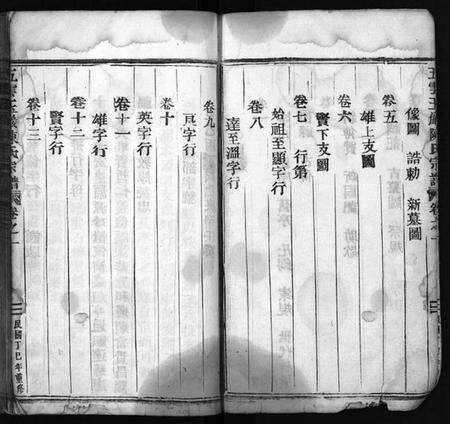 像圖 誥勅 新墓圖
卷五
雄上支圖
卷六
賢下支圖
卷七 行第
始祖至顯字行
卷八
達至溫字行
卷九
卷十
英字行
卷十一
雄字行
卷十二
賢字行
卷十三
民國丁巳年重修